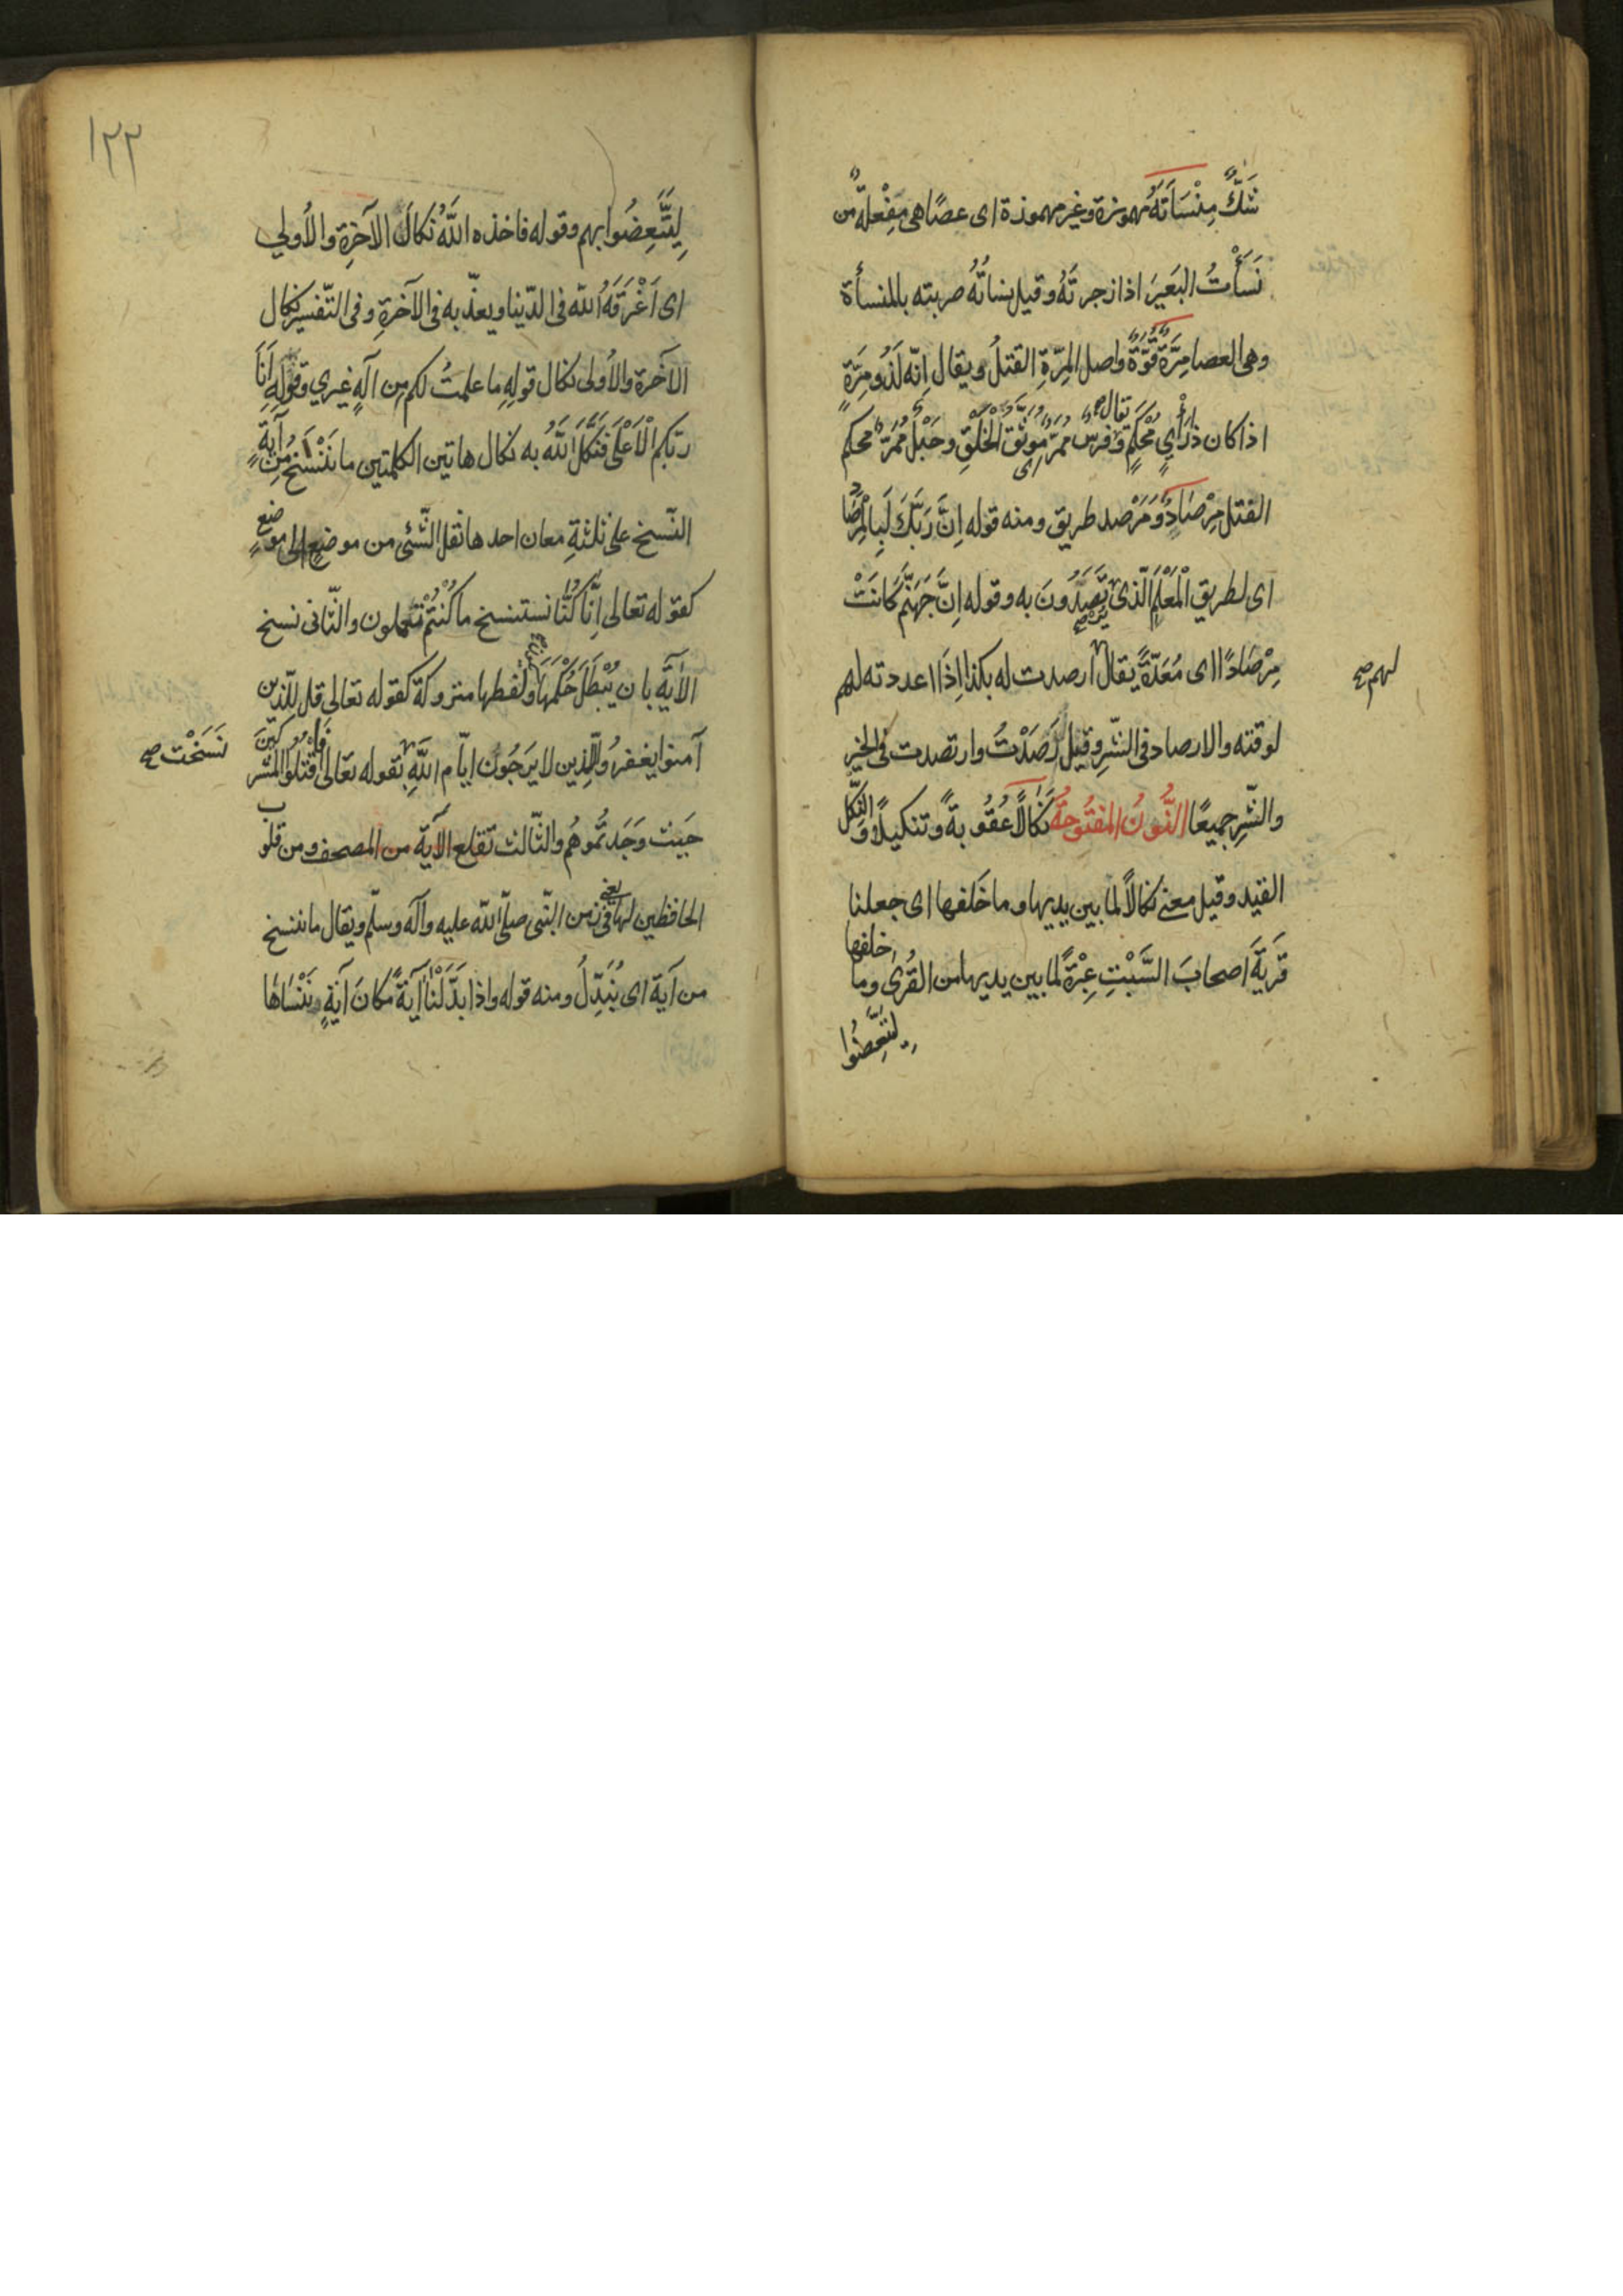 شَكٌّ مِنْسَاَتَهُ مهموزة وغير مهموذة اى عصًا هى مِفْعلةٌ من
نَسَأْتُ البَعَيرَ اذا زجرتَهُ وقيل نسأتُهُ ضربته بالمنسأة
وهى العصا مِرَّةٌ قُوَّةٌ واصل المِرّةِ الفتلُ ويقال اِنّه لَذُو مِرَةٍ
اذا كان ذا رَأْيٍ مُحْكَمٍ ويقال فرسٌ مُمَرٌّ اى مُوَثَّقُ الْخَلْقِ وحَبْلٌ مُمَرٌّ محكم
الفتل مِرْصَادٌ وَمَرْصد طريق ومنه قوله اِنَّ رَبَّكَ لَبِالْمِرْصَادِ
اى لطريق الْمَعْلَمِ الّذى يَرْتَصِدُونَ به وقوله اِنَّ جَهَنَّمَ كَانَتْ
مِرْصَادًا اى مُعَدّةً يقال ارصدت له بكذا اِذَا اعددته لهم
لهم صح
لوقته والارصاد فى الشّرِ وقيل رَصَدْتُ وارتصدت فى الخير
والشّرِ جميعًا النُّونُ المفتُوحَةُ نَكَالًا عُقُوبةً وتنكيلًا وَالنِّكْل
القيد وقيل معنى نكالًا لما بين يديها وما خَلفها اى جعلنا
قَريَةَ اصحابَ السَّبْتِ عِبْرَةً لما بين يديها من القُرى وما خلفها
لِيَتَّعِضُوا
١٢٢
لِيَتَّعِضُوا بهم وقوله فاخذه اللَّهُ نَكالَ الآخِرَةِ والاُولي
اى اَغْرَقَهُ اللّه فى الدّينا ويعذّبه فى الآخرةِ وفى التّفسير نكال
الآخرة والاُولى نكال قولِهِ ما علمتُ لكم مِن آلهٍ غيري وقولِهِ اَنَا
ربّكم الْاَعْلَى فَنَكَّلَ اللَّهُ به نكال هاتين الكلمتين ما نَنْسَخْ مِنْ آيةٍ
النّسخ على ثلثةِ معان احدها نقل الشّئى من موضعٍ الى موضعٍ
كقوله تعالى اِنَّا كُنَّا نستنسخ ما كُنْتُمْ تعملون والثّانى نسخ
الآيَةِ بان يُبْطَلَ حُكْمَهَا ولفظها متروكة كقوله تعالى قل للّذين
آمنوا يغفرُوا للَّذِين لا يَرجُون ايّام اللَّهِ بقوله تعالى فَاقْتُلُوا المُشرِكينَ
نَسَخْت صح
حَيْث وَجَدتُّموهُم والثّالث تقلع الآيَة من المصحف ومن قلوب
الحافظين لها يعنى فى زمن النّبى صلّى اللّه عليه وآله وسلّم ويقال ما ننسخ
من آية اى نُبَدِّلُ ومنه قوله واذا بَدَّلَنْا آيةً مكَانَ آيَةٍ نَنْسَاهَا